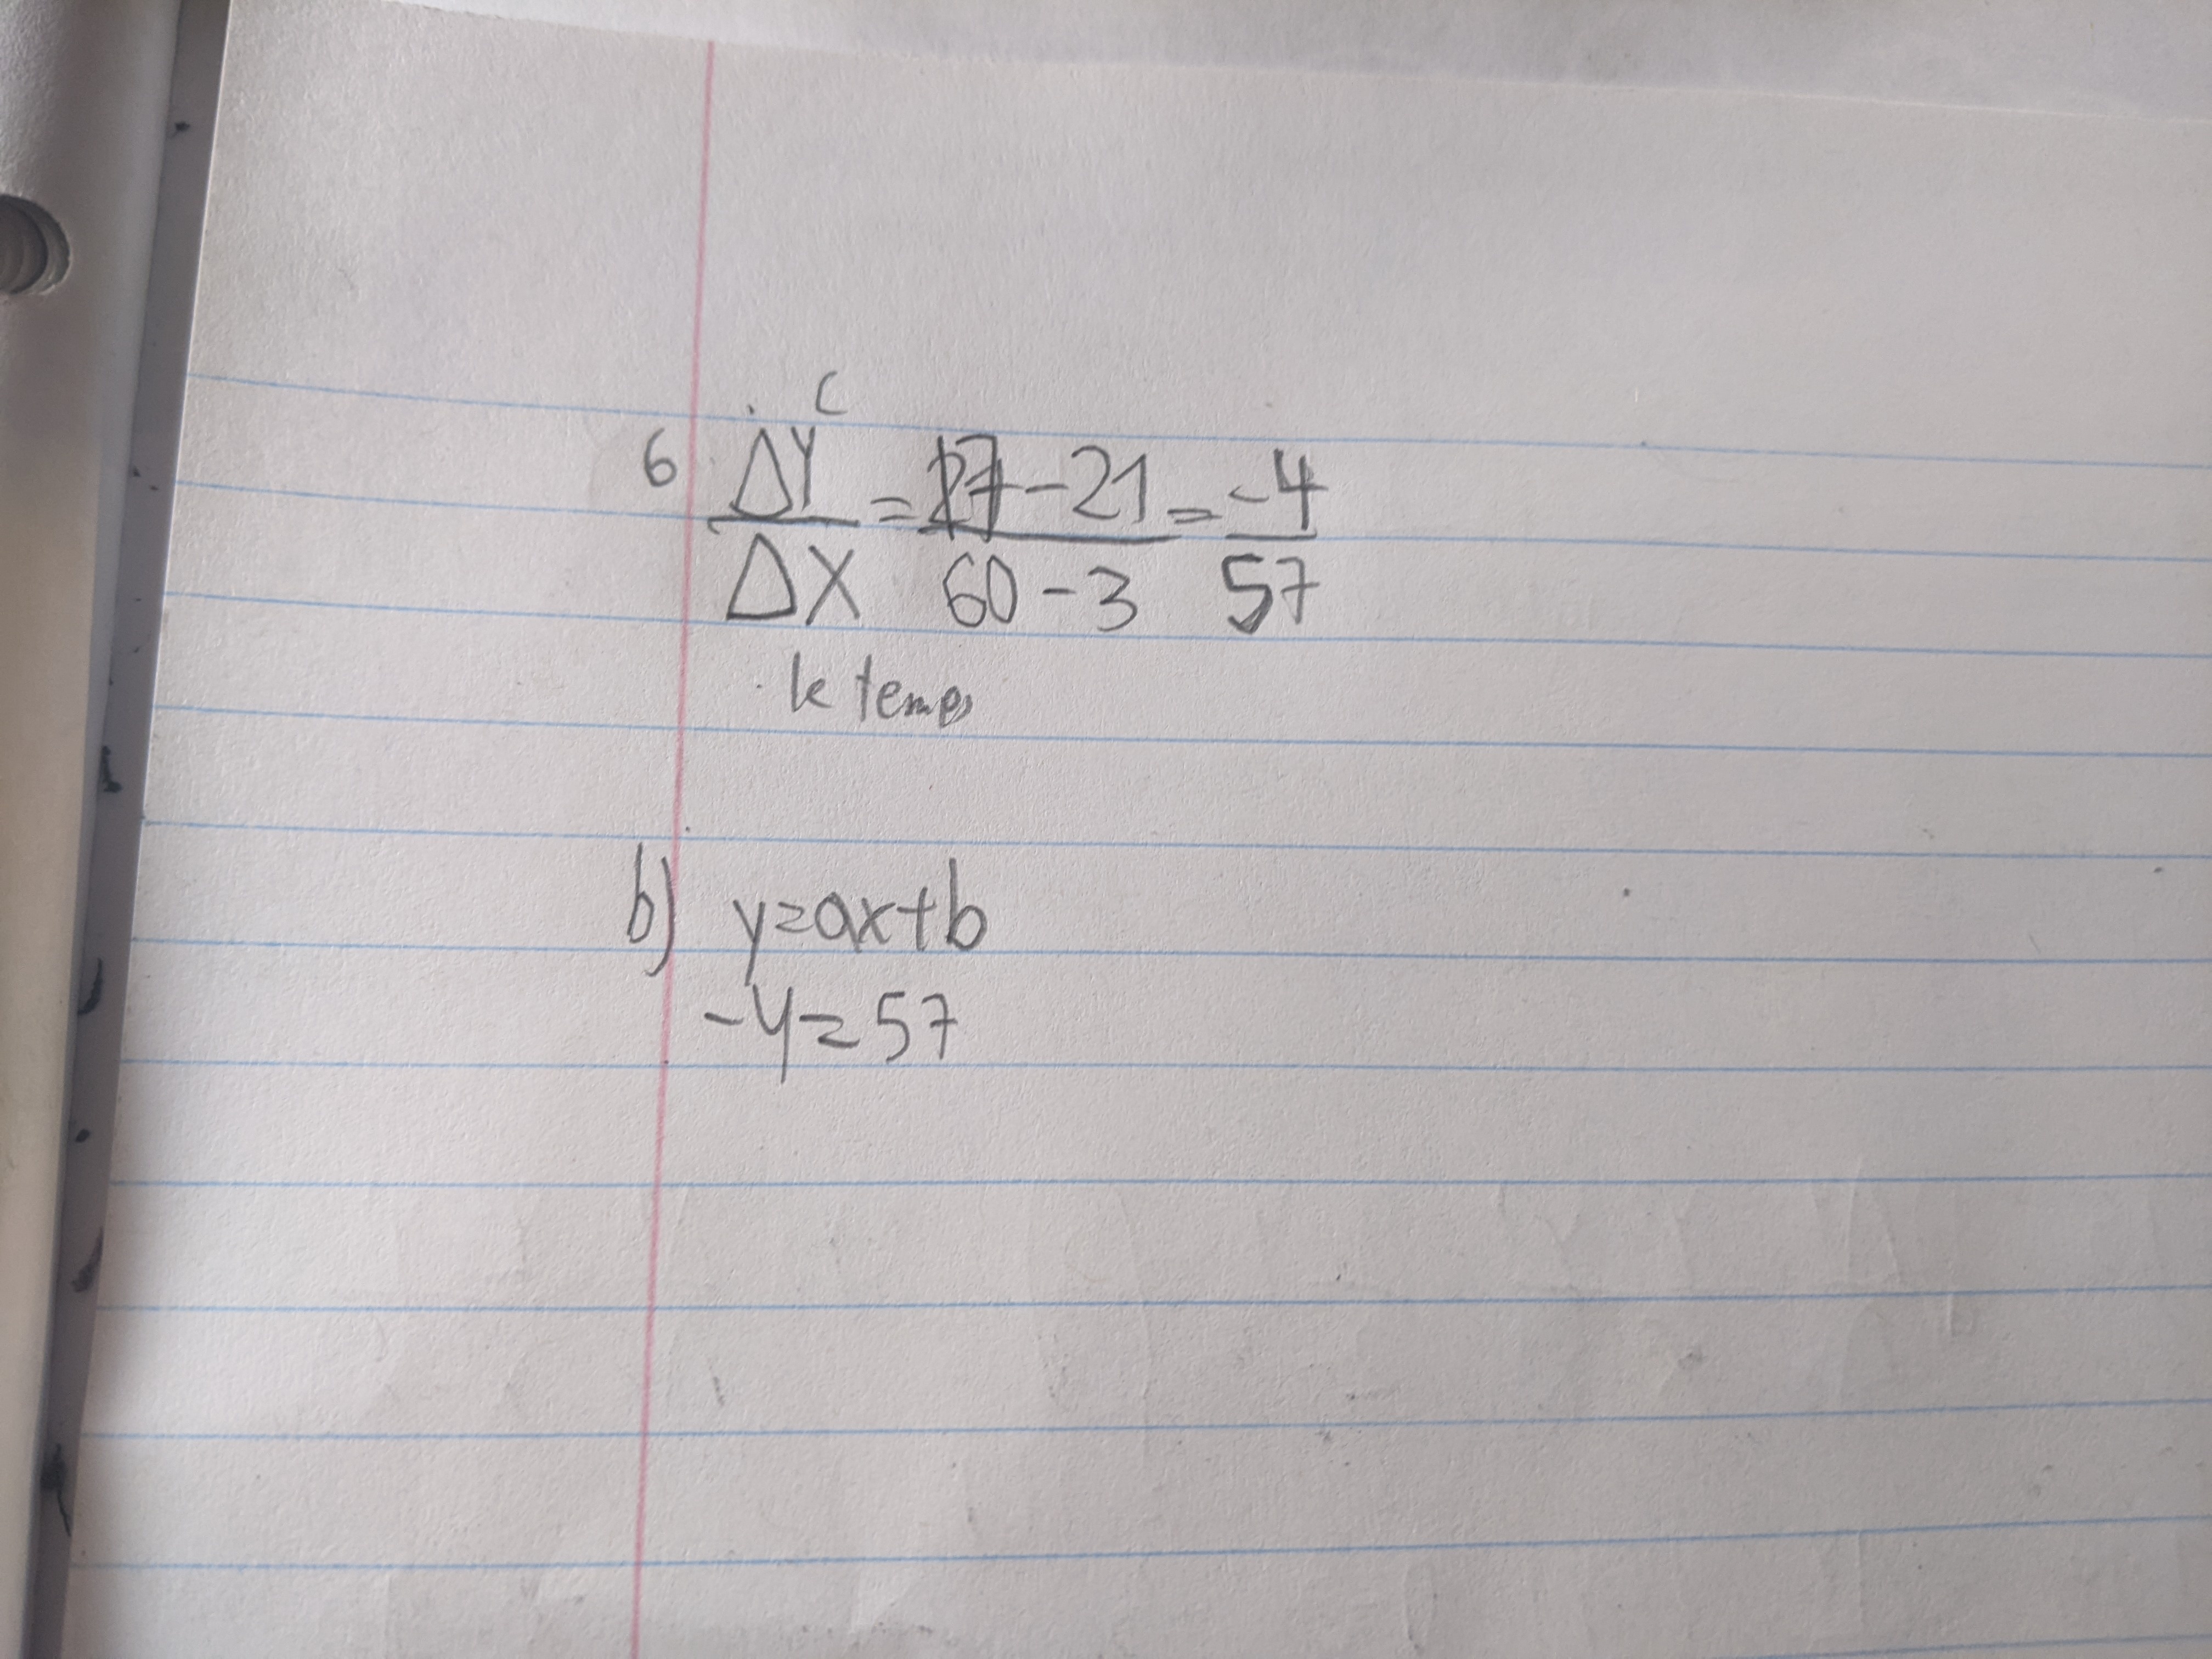 C
6 ΔY/ΔX = 17-21/60-3 = -4/57
le temps
b) y=ax+b
-4=57